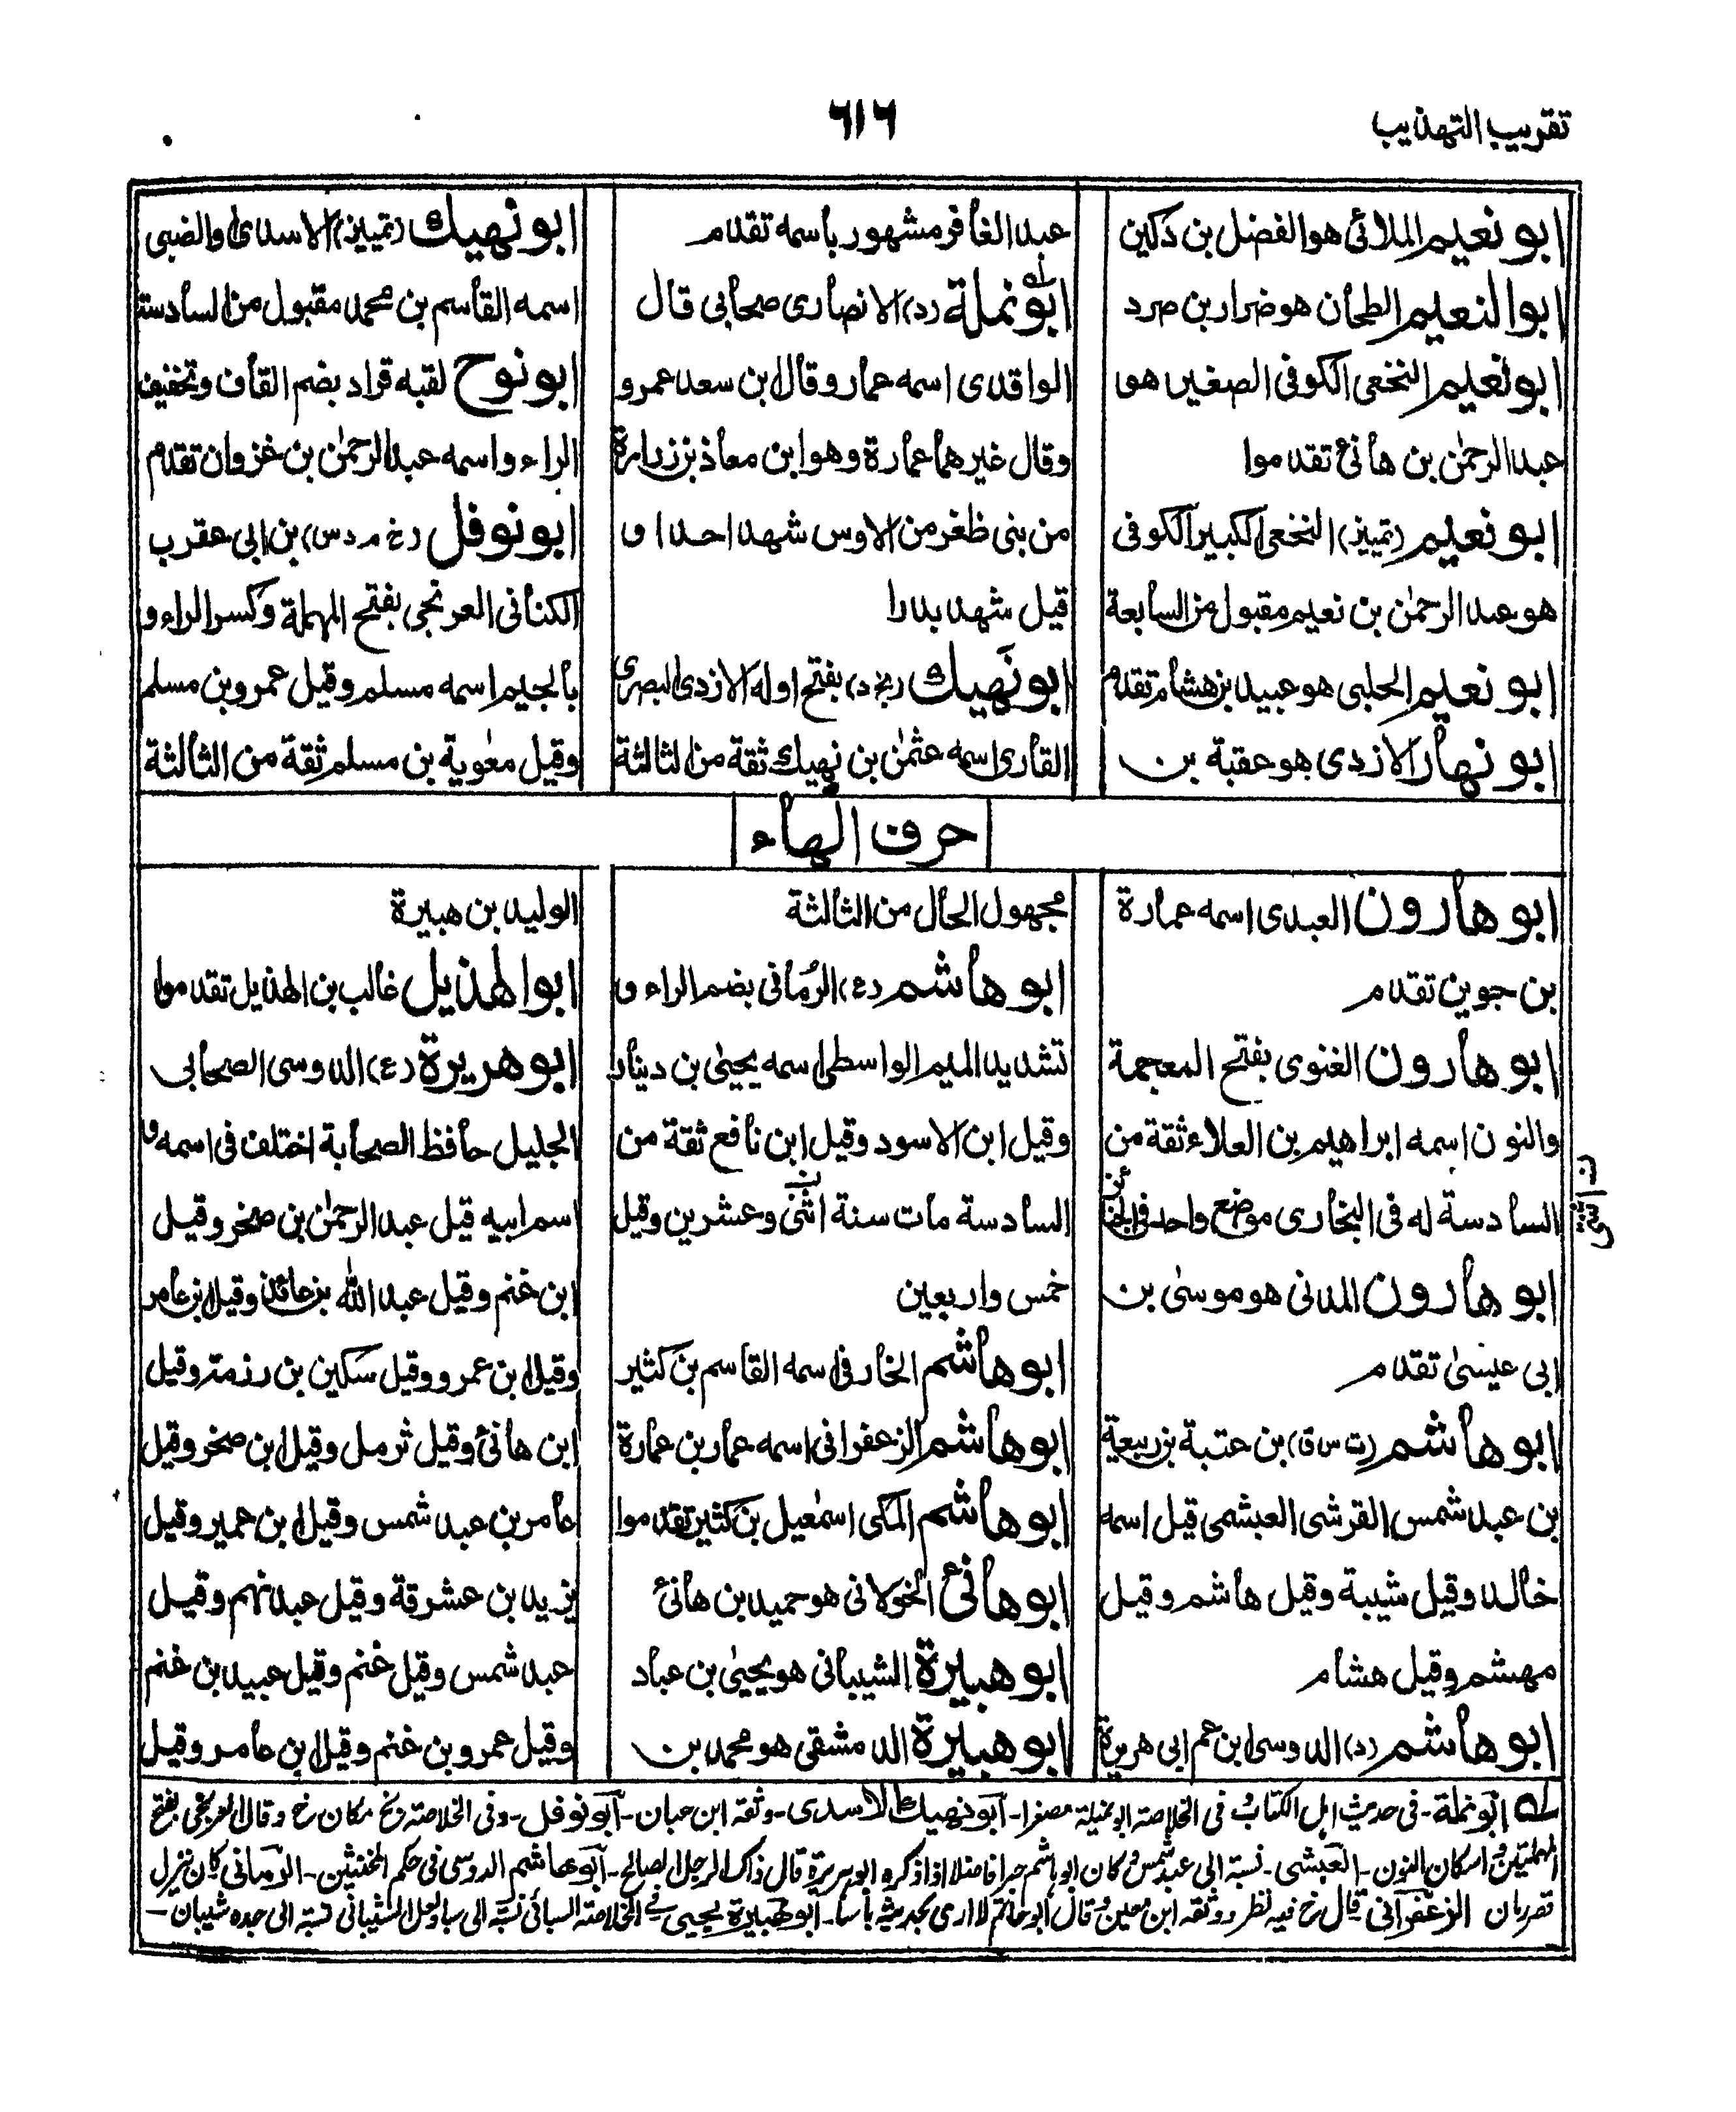 تقريب التهذيب
٦١٦
ابو نعيم الملائي هو الفضل بن دكين
ابو النعيم الطحان هو ضرار بن صرد
ابو نعيم النخعي الكوفي الصغير هو
عبد الرحمٰن بن هانئ تقدموا
ابو نعيم (تمييز) النخعي الكبير الكوفي
هو عبد الرحمٰن بن نعيم مقبول من السابعة
ابو نعيم الحلبي هو عبيد بن هشام تقدم
ابو نهار الازدي هو عقبة بن
عبد الغافر مشهور باسمه تقدم
ابو نملة (د) الانصاري صحابي قال
الواقدي اسمه عمار وقال ابن سعد عمرو
وقال غيرهما عمارة وهو ابن معاذ بن زرارة
من بني ظفر من الاوس شهد احدا و
قيل شهد بدرا
ابو نَهيك (بخ د) بفتح اوله الازدي البصري
القاري اسمه عثمٰن بن نهيك ثقة من الثالثة
ابو نهيك (تمييز) الاسدي او الضبي
اسمه القاسم بن محمد مقبول من السادسة
ابو نوح لقبه قراد بضم القاف وتخفيف
الراء واسمه عبد الرحمٰن بن غزوان تقدم
ابو نوفل (خ م د س) بن ابي عقرب
الكناني العرنجي بفتح المهملة وكسر الراء و
بالجيم اسمه مسلم وقيل عمرو بن مسلم
وقيل معٰوية بن مسلم ثقة من الثالثة
حرف الهاء
ابو هارون العبدي اسمه عمارة
بن جوين تقدم
ابو هارون الغنوي بفتح المعجمة
والنون اسمه ابراهيم بن العلاء ثقة من
السادسة له في البخاري موضع واحد في الجنائز
ابو هارون المدني هو موسىٰ بن
ابي عيسىٰ تقدم
ابو هاشم (ت س ق) بن عتبة بن ربيعة
بن عبد شمس القرشي العبشمي قيل اسمه
خالد وقيل شيبة وقيل هاشم وقيل
مهشم وقيل هشام
ابو هاشم (د) الدوسي ابن عم ابي هريرة
مجهول الحال من الثالثة
ابو هاشم (ع) الرُماني بضم الراء و
تشديد الميم الواسطي اسمه يحيىٰ بن دينار
وقيل ابن الاسود وقيل ابن نافع ثقة من
السادسة مات سنة اثنى وعشرين وقيل
خمس واربعين
ابو هاشم الخارفي اسمه القاسم بن كثير
ابو هاشم الزعفراني اسمه عمار بن عمارة
ابو هاشم المكي اسمٰعيل بن كثير تقدموا
ابو هانئ الخولاني هو حميد بن هانئ
ابو هبيرة الشيباني هو يحيىٰ بن عباد
ابو هبيرة الدمشقي هو محمد بن
الوليد بن هبيرة
ابو الهذيل غالب بن الهذيل تقدموا
ابو هريرة (ع) الدوسي الصحابي
الجليل حافظ الصحابة اختلف في اسمه و
اسم ابيه قيل عبد الرحمٰن بن صخر وقيل
ابن غنم وقيل عبد الله بن عائذ وقيل ابن عامر
وقيل ابن عمرو وقيل سكين بن رزمة وقيل
ابن هانئ وقيل ثرمل وقيل ابن صخر وقيل
عامر بن عبد شمس وقيل ابن عمير وقيل
يزيد بن عشرقة وقيل عبد نهم وقيل
عبد شمس وقيل غنم وقيل عبيد بن غنم
وقيل عمرو بن غنم وقيل ابن عامر وقيل
له ابو نملة - في حديث اهل الكتاب وفي الخلاصة ابو نميلة مصغرا - ابو نهيك الاسدي - وثقه ابن حبان - ابو نوفل - وفي الخلاصة بخ مكان خ وقال العريجي بفتح
المهملتين واسكان النون - العبشمي - نسبة الى عبد شمس وكان ابو هاشم حبرا فاضلا اذا ذكره ابو هريرة قال ذاك الرجل الصالح - ابو هاشم الدوسي في حكم المخنثين - الرماني كان نزيل
قصر رمان الزعفراني قال خ فيه نظر ووثقه ابن معين وقال ابو حاتم لا ارى بحديثه بأسا - ابو هبيرة يحيى في الخلاصة السبائي نسبة الى سبا ولعل الشيباني نسبة الى جده شيبان -